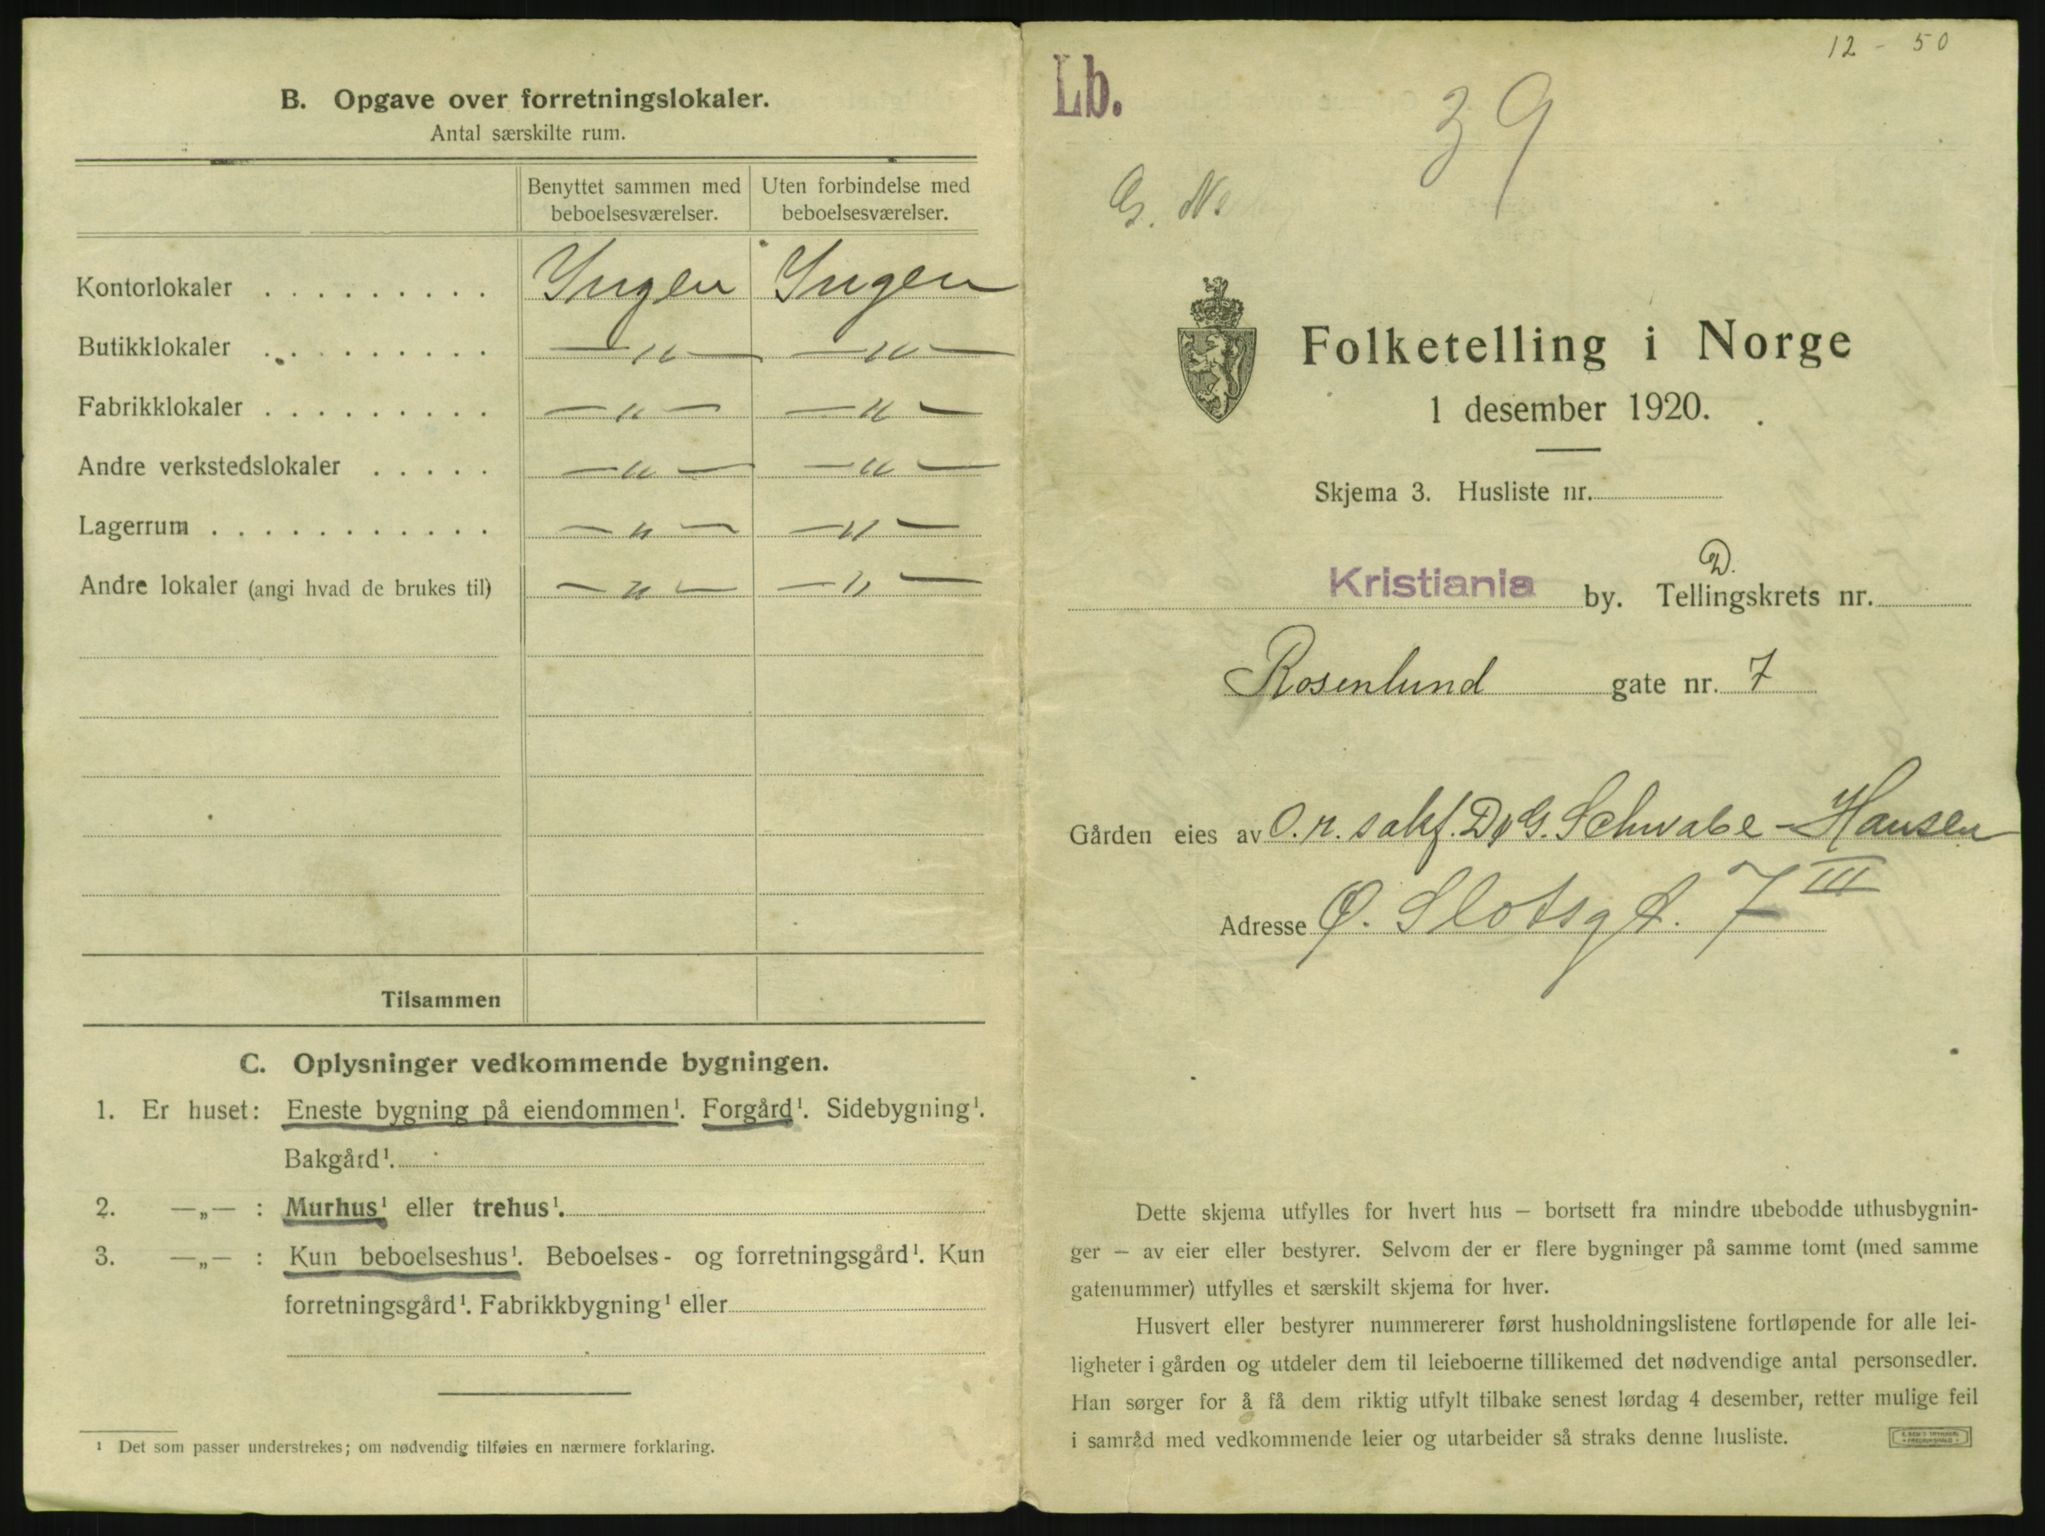 B. Opgave over forretningslokaler.
Antal særskilte rum.
Benyttet sammen med beboelsesværelser.
Uten forbindelse med beboelsesværelser.
Kontorlokaler . . . . . . . . . Ingen Ingen
Butikklokaler . . . . . . . . . — " — — " —
Fabrikklokaler . . . . . . . . . — " — — " —
Andre verkstedslokaler . . . . . — " — — " —
Lagerrum . . . . . . . . . . . — " — — " —
Andre lokaler (angi hvad de brukes til) — " — — " —
Tilsammen
C. Oplysninger vedkommende bygningen.
1. Er huset: Eneste bygning på eiendommen¹. Forgård¹. Sidebygning¹.
Bakgård¹.
2. —„— : Murhus¹ eller trehus¹.
3. —„— : Kun beboelseshus¹. Beboelses- og forretningsgård¹. Kun
forretningsgård¹. Fabrikkbygning¹ eller
¹ Det som passer understrekes; om nødvendig tilføies en nærmere forklaring.
12 - 50
Lb.
39
G. Ne
Folketelling i Norge
1 desember 1920.
Skjema 3. Husliste nr.
D.
Kristiania by. Tellingskrets nr.
Rosenlund gate nr. 7
Gården eies av O.r. sakf. D. G. Schwabe-Hansen
Adresse Ø. Slotsgt. 7 III
Dette skjema utfylles for hvert hus – bortsett fra mindre ubebodde uthusbygnin-
ger – av eier eller bestyrer. Selvom der er flere bygninger på samme tomt (med samme
gatenummer) utfylles et særskilt skjema for hver.
Husvert eller bestyrer nummererer først husholdningslistene fortløpende for alle lei-
ligheter i gården og utdeler dem til leieboerne tillikemed det nødvendige antal personsedler.
Han sørger for å få dem riktig utfylt tilbake senest lørdag 4 desember, retter mulige feil
i samråd med vedkommende leier og utarbeider så straks denne husliste.